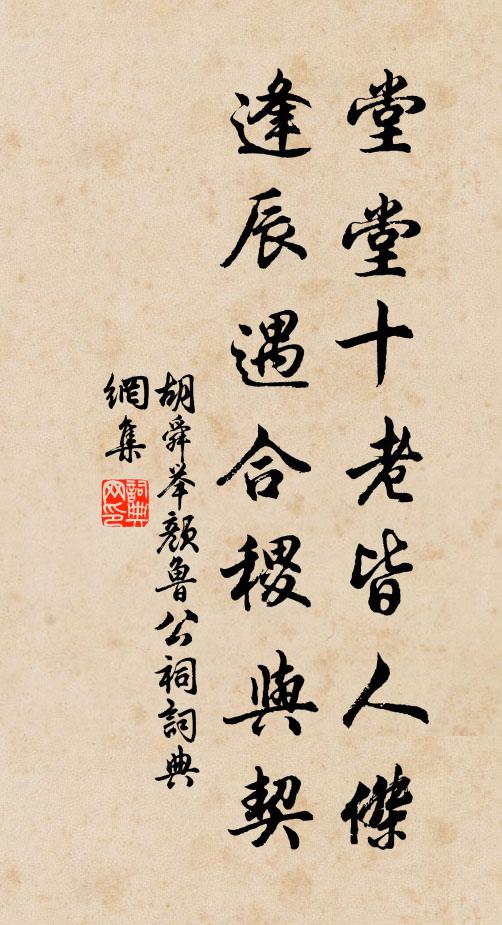 堂堂十老皆人傑
逢辰遇合稷與契
胡舜举顏魯公祠詞典
網集
詞典
网印